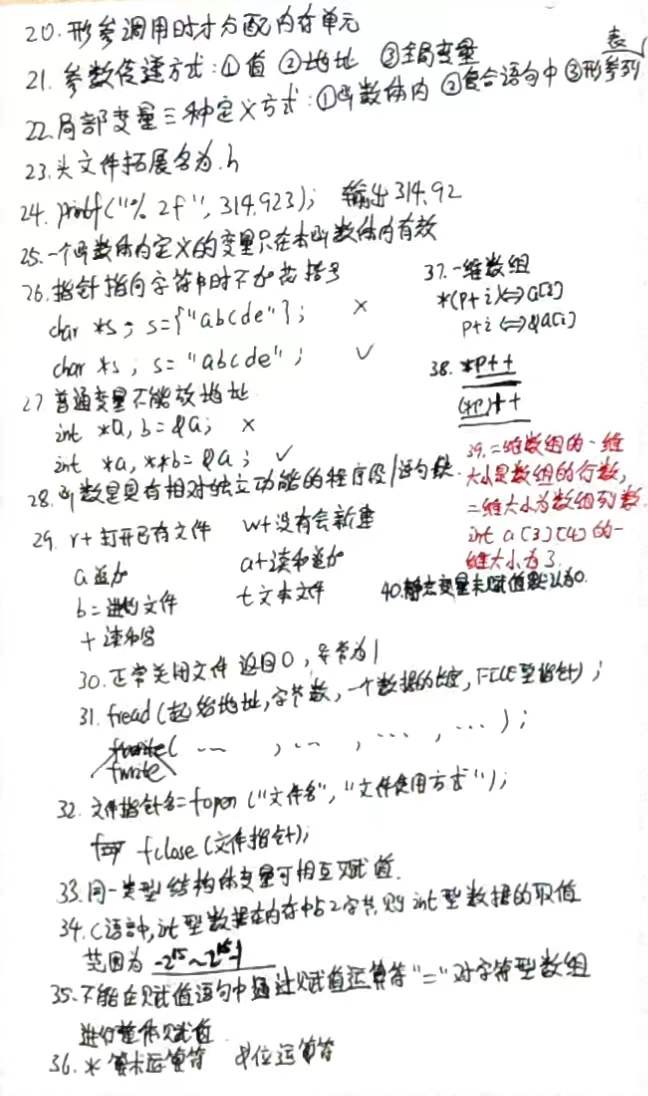 20.形参调用时才分配内存单元
21.参数传递方式:①值 ②地址 ③全局变量
22.局部变量三种定义方式:①函数体内 ②复合语句中 ③形参列表
23.头文件拓展名为.h
24.printf("%.2f",314.923); 输出314.92
25.一个函数体内定义的变量只在本函数体内有效
26.指针指向字符串时不加花括号
char *s; s={"abcde"}; ×
char *s; s="abcde"; √
27普通变量不能放地址
int *a,b=&a; ×
int *a,**b=&a; √
28.函数是具有相对独立功能的程序段/语句块.
29. r+打开已有文件 w+没有会新建
a追加 a+读和追加
b=进制文件 t文本文件
+读和写
30.正常关闭文件返回0,异常为1
31.fread(起始地址,字节数,一个数据的长度,FILE型指针);
fwrite( … ,… , … , … );
fwrite
32.文件指针名=fopen("文件名","文件使用方式");
fclose(文件指针);
33.同一类型结构体变量可相互赋值.
34.C语言中,int型数据在内存中占2字节,则int型数据的取值
范围为 -2^15~2^15-1
35.不能在赋值语句中通过赋值运算符"="对字符型数组
进行整体赋值
36.*算术运算符 &位运算符
37.一维数组
*(p+i)⇔a[i]
p+i⇔&a[i]
38. *p++
(*p)++
39.二维数组的一维
大小是数组的行数,
二维大小为数组列数.
int a[3][4]的一
维大小为3.
40.静态变量未赋值默认为0.